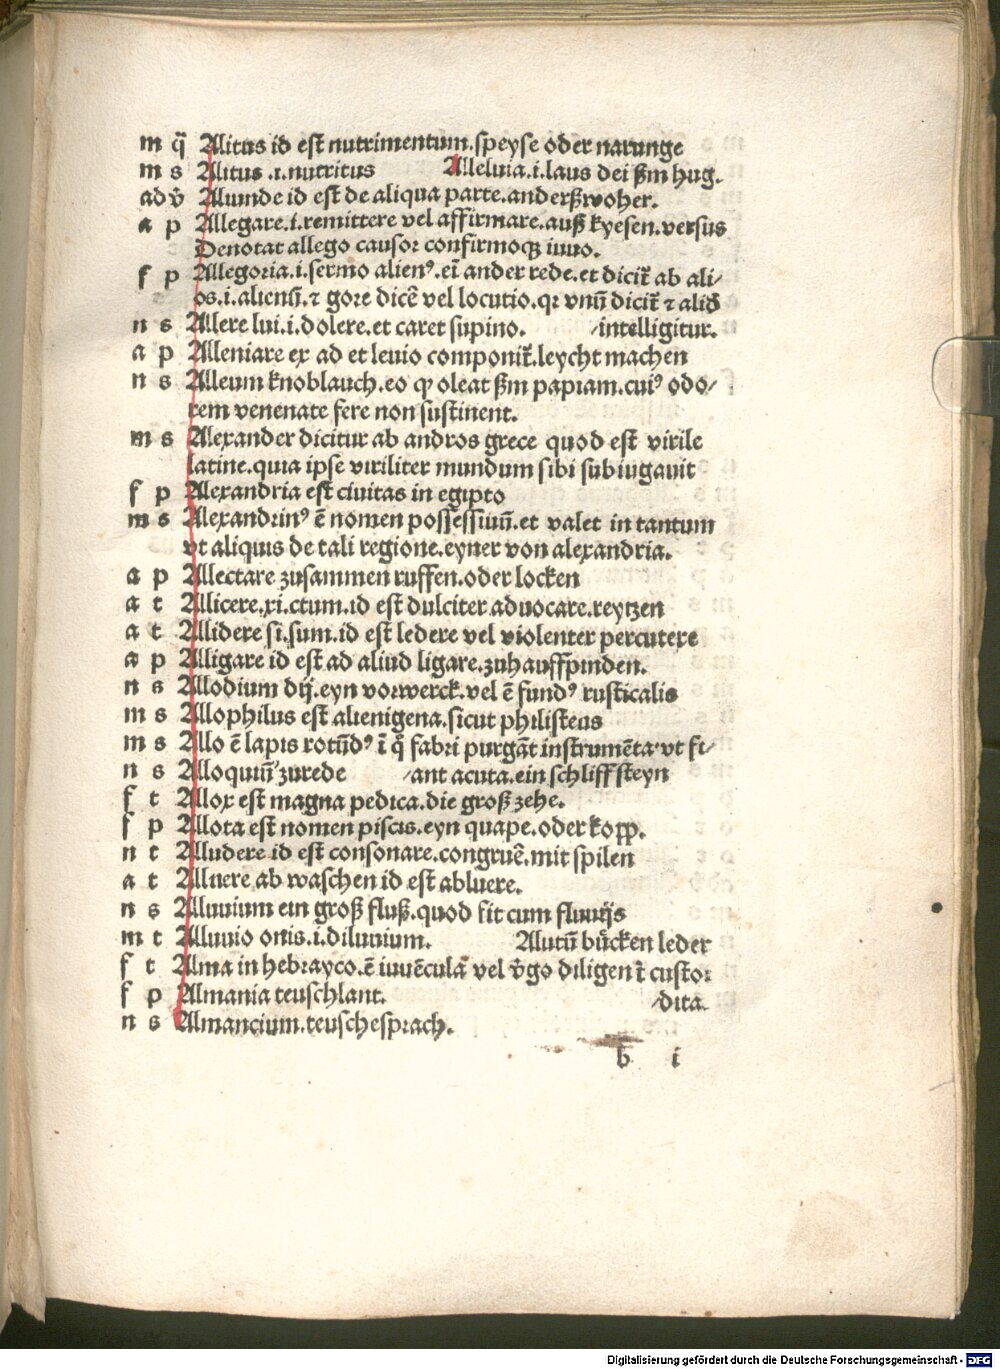 m q̈ Alitus id est nutrimentum.speyse oder narunge
m s Alitus .i.nutritus Alleluia.i.laus dei ẜm hug.
ad v̄ Aliunde id est de aliqua parte.anderßwoher.
a p Allegare.i.remittere vel affirmare.auß kyesen.versus
Denotat allego causor confirmoqꝫ iuuo.
f p Allegoria.i.sermo alienꝰ.ein̄ ander rede.et dicit᷑ ab ali⸗
os.i.alienū.⁊ gore dicē vel locutio.qꝛ vnū dicit᷑ ⁊ aliđ
n s Allere lui.i.dolere.et caret supino. ⸗intelligitur.
a p Alleniare ex ad et leuio componit᷑.leycht machen
n s Alleum knoblauch.eo ꝙ oleat ẜm papiam.cuiꝰ odo⸗
rem venenate fere non sustinent.
m s Alexander dicitur ab andros grece quod est virile
latine.quia ipse viriliter mundum sibi subiugauit
f p Alexandria est ciuitas in egipto
m s Alexandrinꝰ ē nomen possessiuū.et valet in tantum
vt aliquis de tali regione.eyner von alexandria.
a p Allectare zusammen ruffen.oder locken
a t Allicere.xi.ctum.id est dulciter aduocare.reytzen
a t Allidere si.sum.id est ledere vel violenter percutere
a p Alligare id est ad aliud ligare.zuhauffpinden.
n s Allodium dij.eyn vorwerck.vel ē fundꝰ rusticalis
m s Allophilus est alienigena.sicut philisteus
m s Allo ē lapis rotūdꝰ ī q̊ fabri purgāt instrumēta.vt fi⸗
n s Alloquiū zurede ⸗ant acuta.ein schliffsteyn
f t Allox est magna pedica.die groß zehe.
f p Allota est nomen piscis.eyn quape.oder kopp.
n t Alludere id est consonare.congruē.mit spilen
a t Alluere ab waschen id est abluere.
n s Alluuium ein groß fluß.quod fit cum fluuijs
m t Alluuio onis.i.diluuium. Alutū bücken leder
f t Alma in hebrayco.ē iuuēcula vel v̄go diligent᷑ custo⸗
f p Almania teuschlant. ⸗dita.
n s Almancium.teuschesprach.
b i
Digitalisierung gefördert durch die Deutsche Forschungsgemeinschaft - DFG